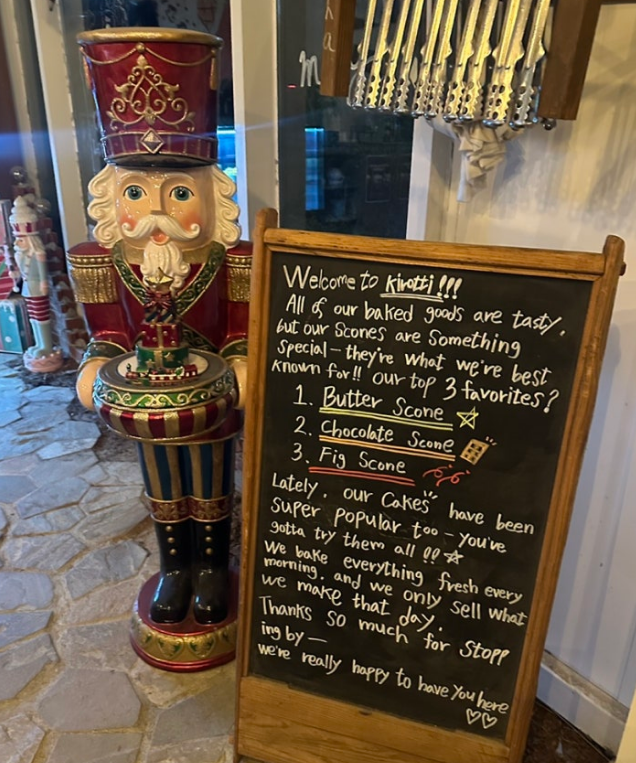 Welcome to Kirotti !!!
All of our baked goods are tasty,
but our Scones are Something
special - they're what we're best
known for!! our top 3 favorites?
1. Butter Scone
2. Chocolate Scone
3. Fig Scone
Lately, our Cakes have been
super popular too - you've
gotta try them all !!
We bake everything fresh every
morning, and we only sell what
we make that day.
Thanks so much for Stopp
ing by —
we're really happy to have you here